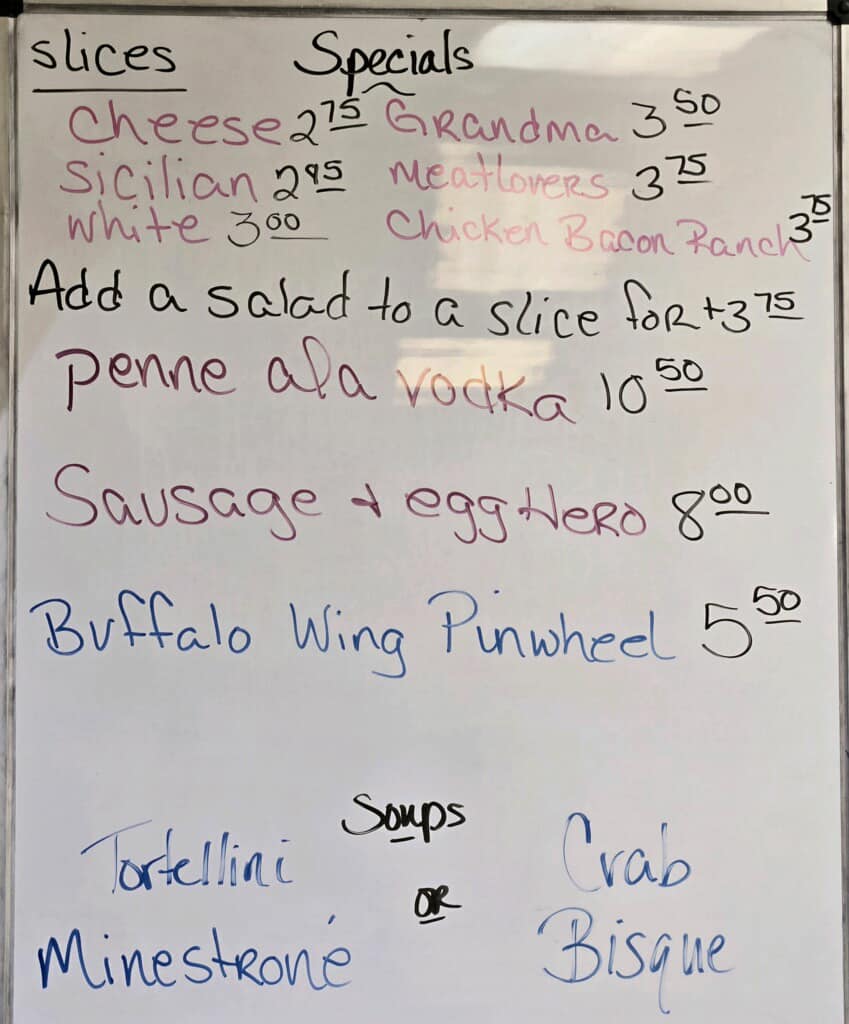 slices Specials
Cheese 2.75 Grandma 3.50
Sicilian 2.95 Meatlovers 3.75
White 3.00 Chicken Bacon Ranch 3.75
Add a salad to a slice for +3.75
Penne ala vodka 10.50
Sausage + egg Hero 8.00
Buffalo Wing Pinwheel 5.50
Soups
Tortellini Crab
OR
Minestroné Bisque